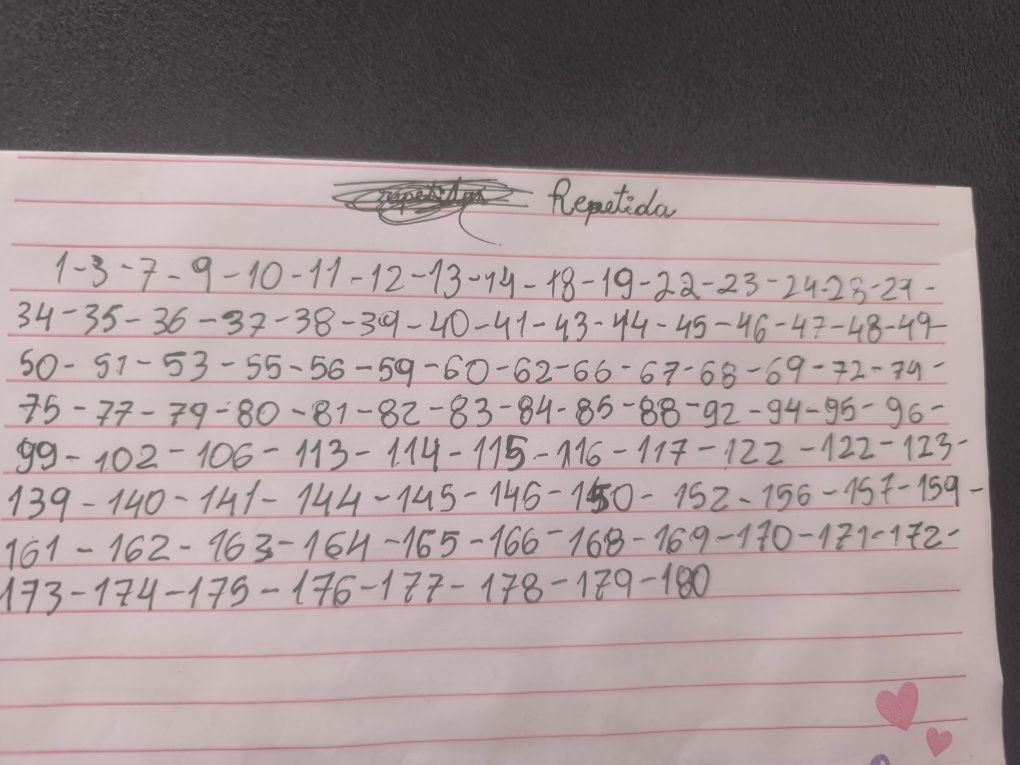 Repetida
1-3-7-9-10-11-12-13-14-18-19-22-23-24-28-29-
34-35-36-37-38-39-40-41-43-44-45-46-47-48-49-
50-51-53-55-56-59-60-62-66-67-68-69-72-74-
75-77-79-80-81-82-83-84-85-88-92-94-95-96-
99-102-106-113-114-115-116-117-122-122-123-
139-140-141-144-145-146-150-152-156-157-159-
161-162-163-164-165-166-168-169-170-171-172-
173-174-175-176-177-178-179-180